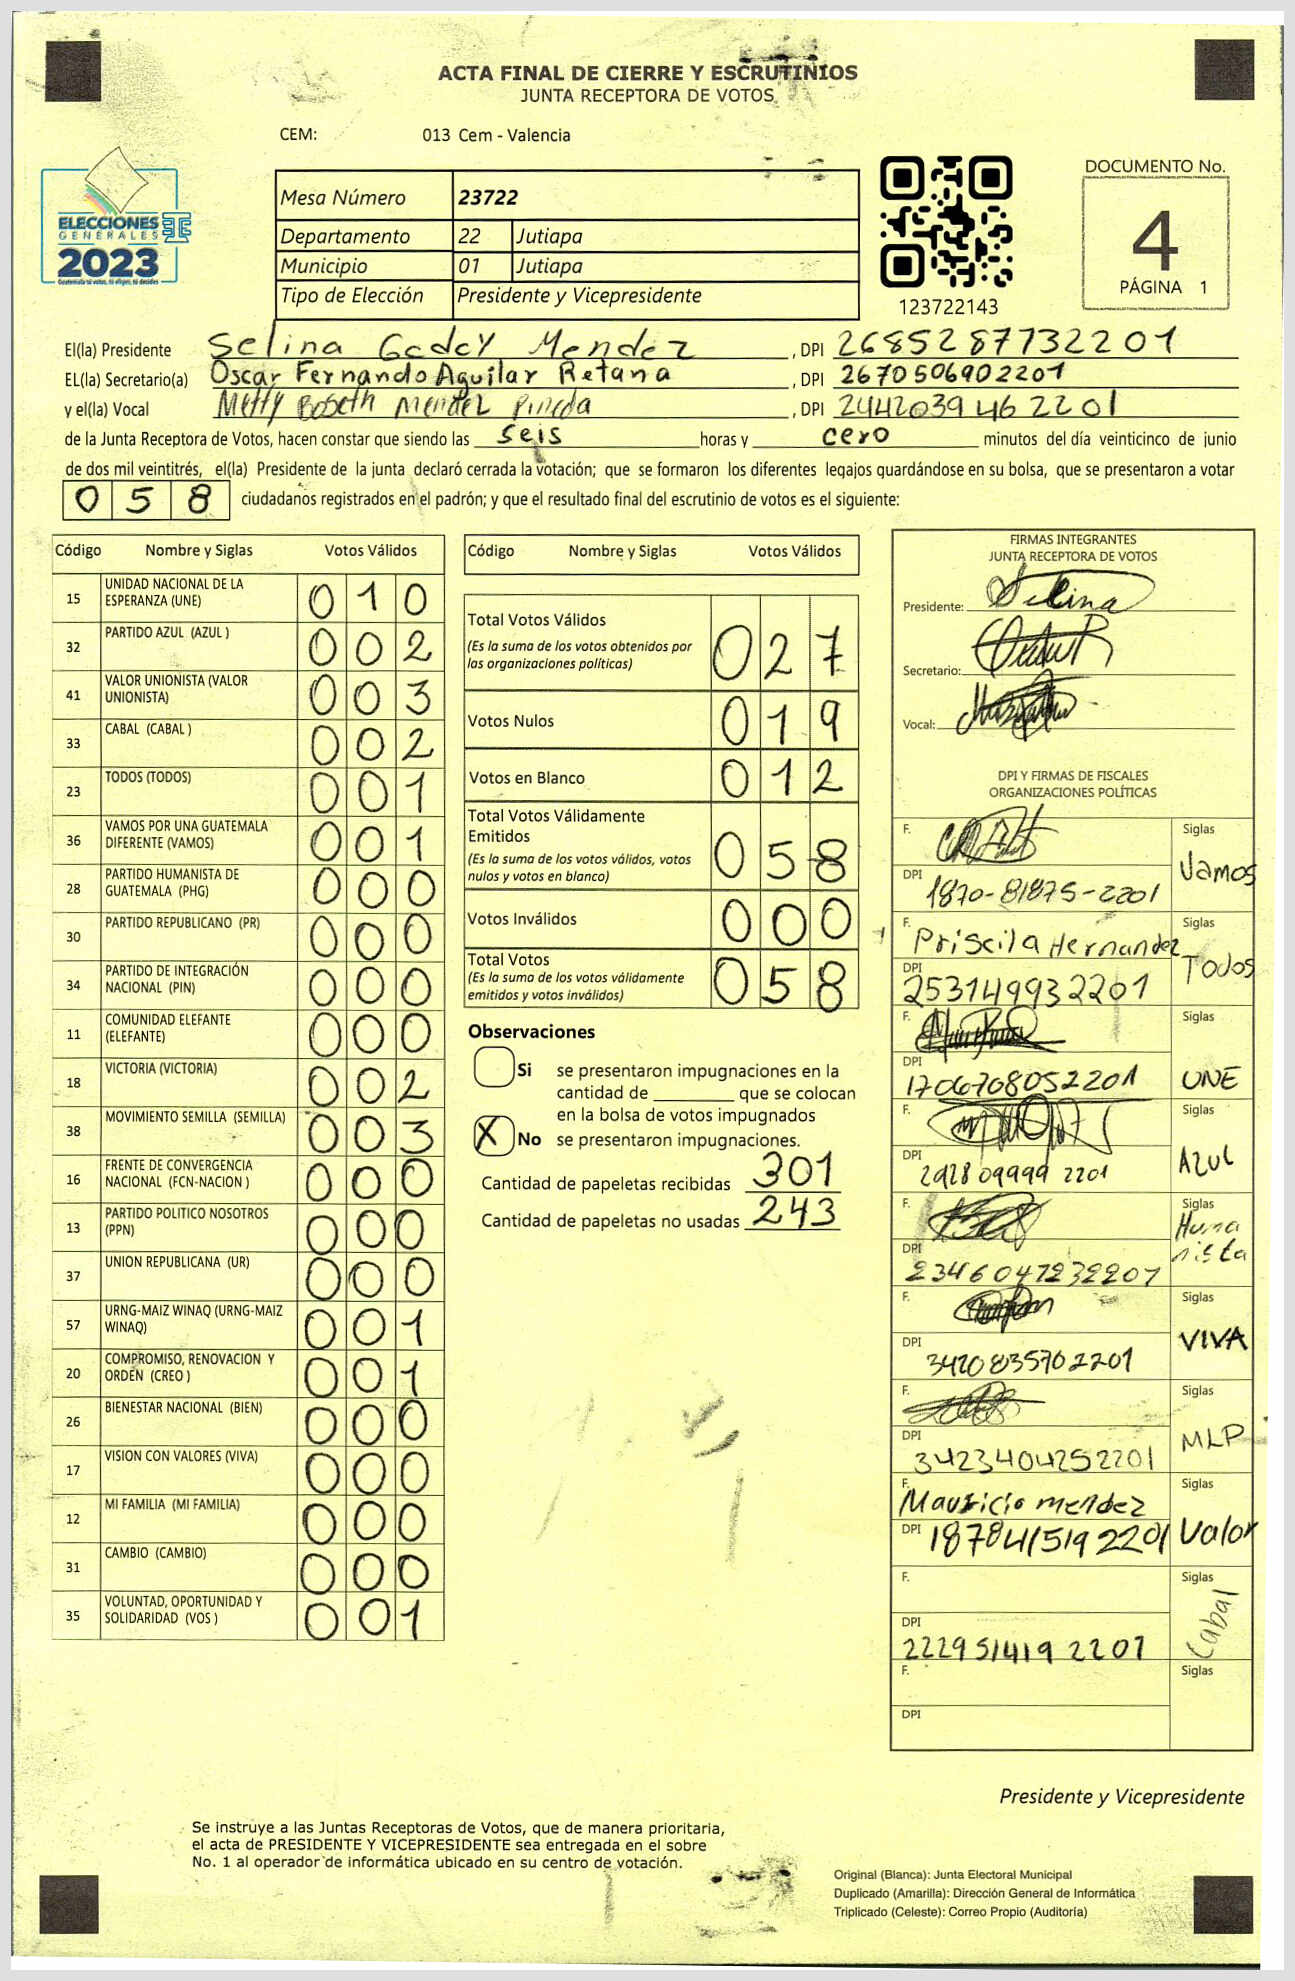 ACTA FINAL DE CIERRE Y ESCRUTINIOS
JUNTA RECEPTORA DE VOTOS
CEM: 013 Cem - Valencia
ELECCIONES
GENERALES
2023
Guatemala tú votas, tú eliges, tú decides
Mesa Número 23722
Departamento 22 Jutiapa
Municipio 01 Jutiapa
Tipo de Elección Presidente y Vicepresidente
123722143
DOCUMENTO No.
4
PÁGINA 1
El(la) Presidente Selina Godoy Mendez, DPI 2685287732201
EL(la) Secretario(a) Oscar Fernando Aguilar Retana, DPI 2670506902201
y el(la) Vocal Mendez Pineda, DPI 2442039462201
de la Junta Receptora de Votos, hacen constar que siendo las seis horas y cero minutos del día veinticinco de junio
de dos mil veintitrés, el(la) Presidente de la junta declaró cerrada la votación; que se formaron los diferentes legajos guardándose en su bolsa, que se presentaron a votar
058 ciudadanos registrados en el padrón; y que el resultado final del escrutinio de votos es el siguiente:
Código Nombre y Siglas Votos Válidos
15 UNIDAD NACIONAL DE LA ESPERANZA (UNE) 010
32 PARTIDO AZUL (AZUL ) 002
41 VALOR UNIONISTA (VALOR UNIONISTA) 003
33 CABAL (CABAL ) 002
23 TODOS (TODOS) 001
36 VAMOS POR UNA GUATEMALA DIFERENTE (VAMOS) 001
28 PARTIDO HUMANISTA DE GUATEMALA (PHG) 000
30 PARTIDO REPUBLICANO (PR) 000
34 PARTIDO DE INTEGRACIÓN NACIONAL (PIN) 000
11 COMUNIDAD ELEFANTE (ELEFANTE) 000
18 VICTORIA (VICTORIA) 002
38 MOVIMIENTO SEMILLA (SEMILLA) 003
16 FRENTE DE CONVERGENCIA NACIONAL (FCN-NACION ) 000
13 PARTIDO POLITICO NOSOTROS (PPN) 000
37 UNION REPUBLICANA (UR) 000
57 URNG-MAIZ WINAQ (URNG-MAIZ WINAQ) 001
20 COMPROMISO, RENOVACION Y ORDEN (CREO ) 001
26 BIENESTAR NACIONAL (BIEN) 000
17 VISION CON VALORES (VIVA) 000
12 MI FAMILIA (MI FAMILIA) 000
31 CAMBIO (CAMBIO) 000
35 VOLUNTAD, OPORTUNIDAD Y SOLIDARIDAD (VOS ) 001
Código Nombre y Siglas Votos Válidos
Total Votos Válidos 027
(Es la suma de los votos obtenidos por
las organizaciones políticas)
Votos Nulos 019
Votos en Blanco 012
Total Votos Válidamente
Emitidos 058
(Es la suma de los votos válidos, votos
nulos y votos en blanco)
Votos Inválidos 000
Total Votos 058
(Es la suma de los votos válidamente
emitidos y votos inválidos)
Observaciones
Si se presentaron impugnaciones en la
cantidad de ________ que se colocan
en la bolsa de votos impugnados
X No se presentaron impugnaciones.
Cantidad de papeletas recibidas 301
Cantidad de papeletas no usadas 243
FIRMAS INTEGRANTES
JUNTA RECEPTORA DE VOTOS
Presidente: Selina
Secretario:
Vocal:
DPI Y FIRMAS DE FISCALES
ORGANIZACIONES POLÍTICAS
F. Siglas Vamos
DPI 1870-81875-2201
F. Priscila Hernandez Siglas Todos
DPI 2531499322201
F. Siglas UNE
DPI 1706708052201
F. Siglas AZUL
DPI 2928099992201
F. Siglas Humanista
DPI 2346047232201
F. Siglas VIVA
DPI 3420835702201
F. Siglas MLP
DPI 3423404252201
F. Mauricio mendez Siglas Valor
DPI 1878415192201
F. Siglas Cabal
DPI 2229514192201
F. Siglas
DPI
Presidente y Vicepresidente
Se instruye a las Juntas Receptoras de Votos, que de manera prioritaria,
el acta de PRESIDENTE Y VICEPRESIDENTE sea entregada en el sobre
No. 1 al operador de informática ubicado en su centro de votación.
Original (Blanca): Junta Electoral Municipal
Duplicado (Amarilla): Dirección General de Informática
Triplicado (Celeste): Correo Propio (Auditoría)